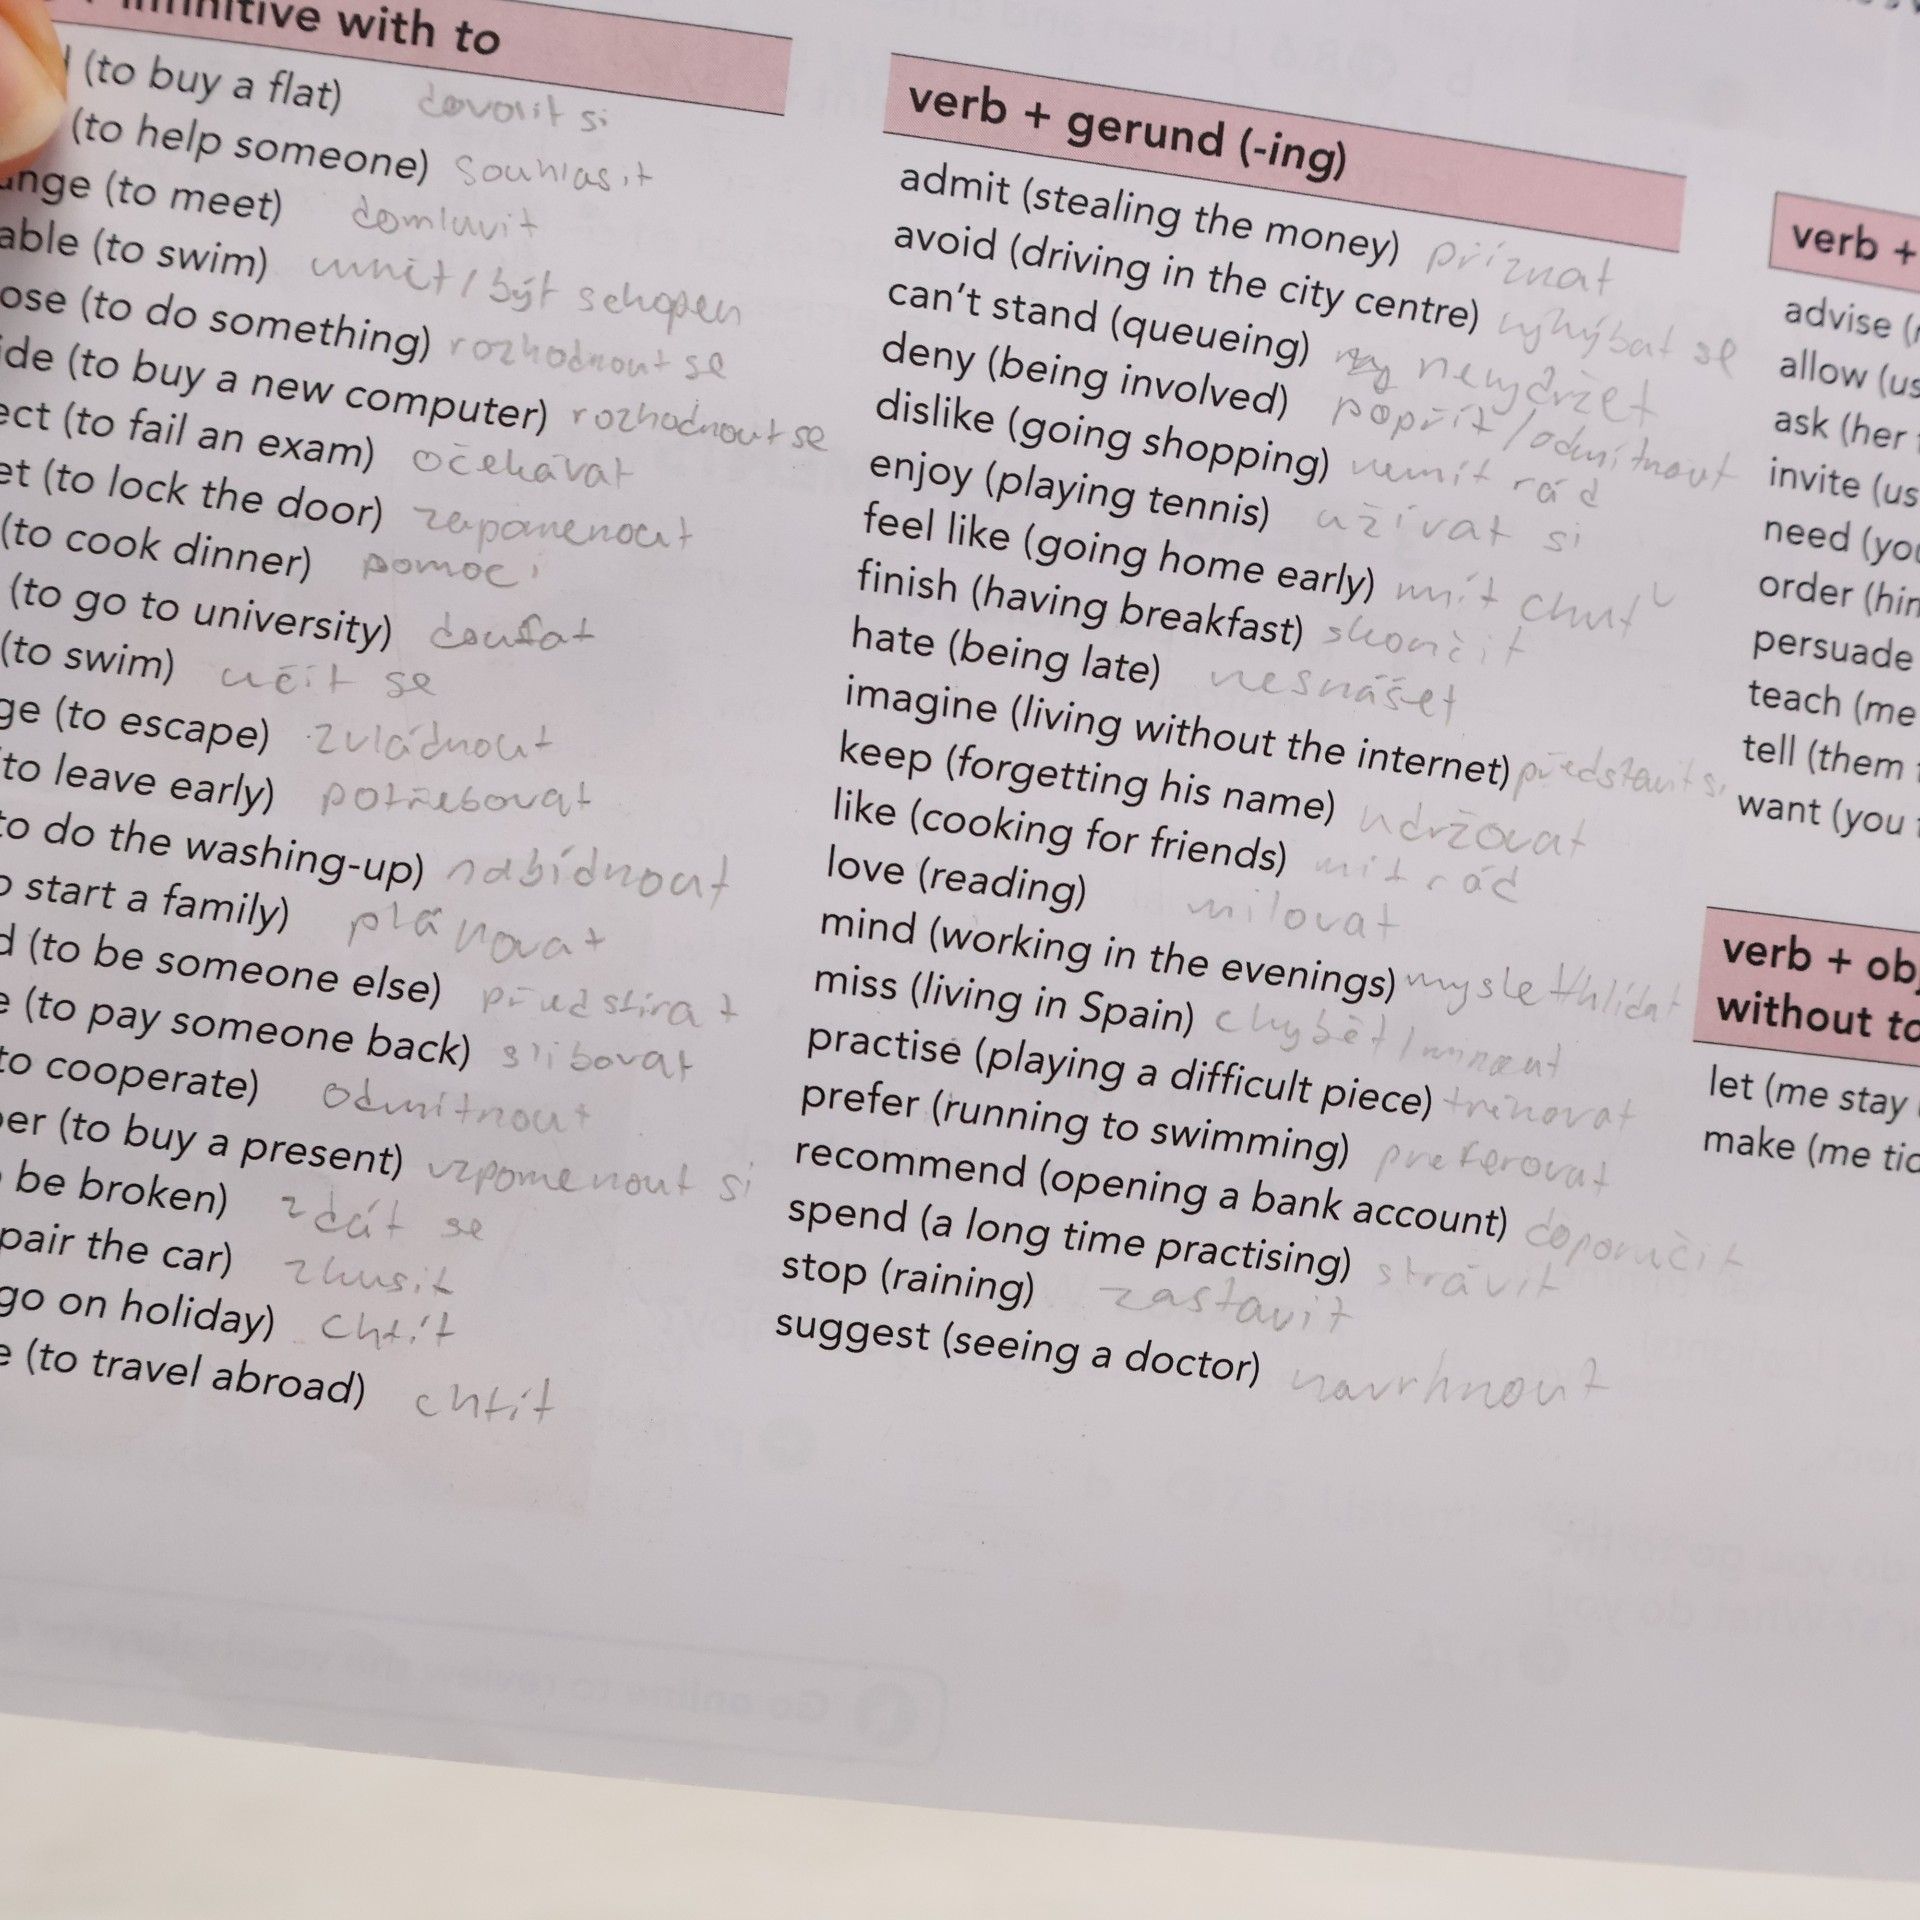 infinitive with to
(to buy a flat) dovolit si
(to help someone) souhlasit
ange (to meet) domluvit
able (to swim) umět / být schopen
ose (to do something) rozhodnout se
ide (to buy a new computer) rozhodnout se
ect (to fail an exam) očekávat
et (to lock the door) zapomenout
(to cook dinner) pomoci
(to go to university) doufat
(to swim) učit se
ge (to escape) zvládnout
(to leave early) potřebovat
to do the washing-up) nabídnout
o start a family) plánovat
d (to be someone else) předstírat
e (to pay someone back) slibovat
to cooperate) odmítnout
ber (to buy a present) vzpomenout si
be broken) zdát se
pair the car) zkusit
go on holiday) chtít
e (to travel abroad) chtít
verb + gerund (-ing)
admit (stealing the money) příznat
avoid (driving in the city centre) vyhýbat se
can't stand (queueing) nevydržet
deny (being involved) popřít / odmítnout
dislike (going shopping) nemít rád
enjoy (playing tennis) užívat si
feel like (going home early) mít chuť
finish (having breakfast) skončit
hate (being late) nesnášet
imagine (living without the internet) představit si
keep (forgetting his name) udržovat
like (cooking for friends) mít rád
love (reading) milovat
mind (working in the evenings) myslet / hlídat
miss (living in Spain) chybět / minout
practise (playing a difficult piece) trénovat
prefer (running to swimming) preferovat
recommend (opening a bank account) doporučit
spend (a long time practising) strávit
stop (raining) zastavit
suggest (seeing a doctor) navrhnout
verb +
advise (
allow (us
ask (her
invite (us
need (you
order (him
persuade
teach (me
tell (them
want (you
verb + obj
without to
let (me stay
make (me tid